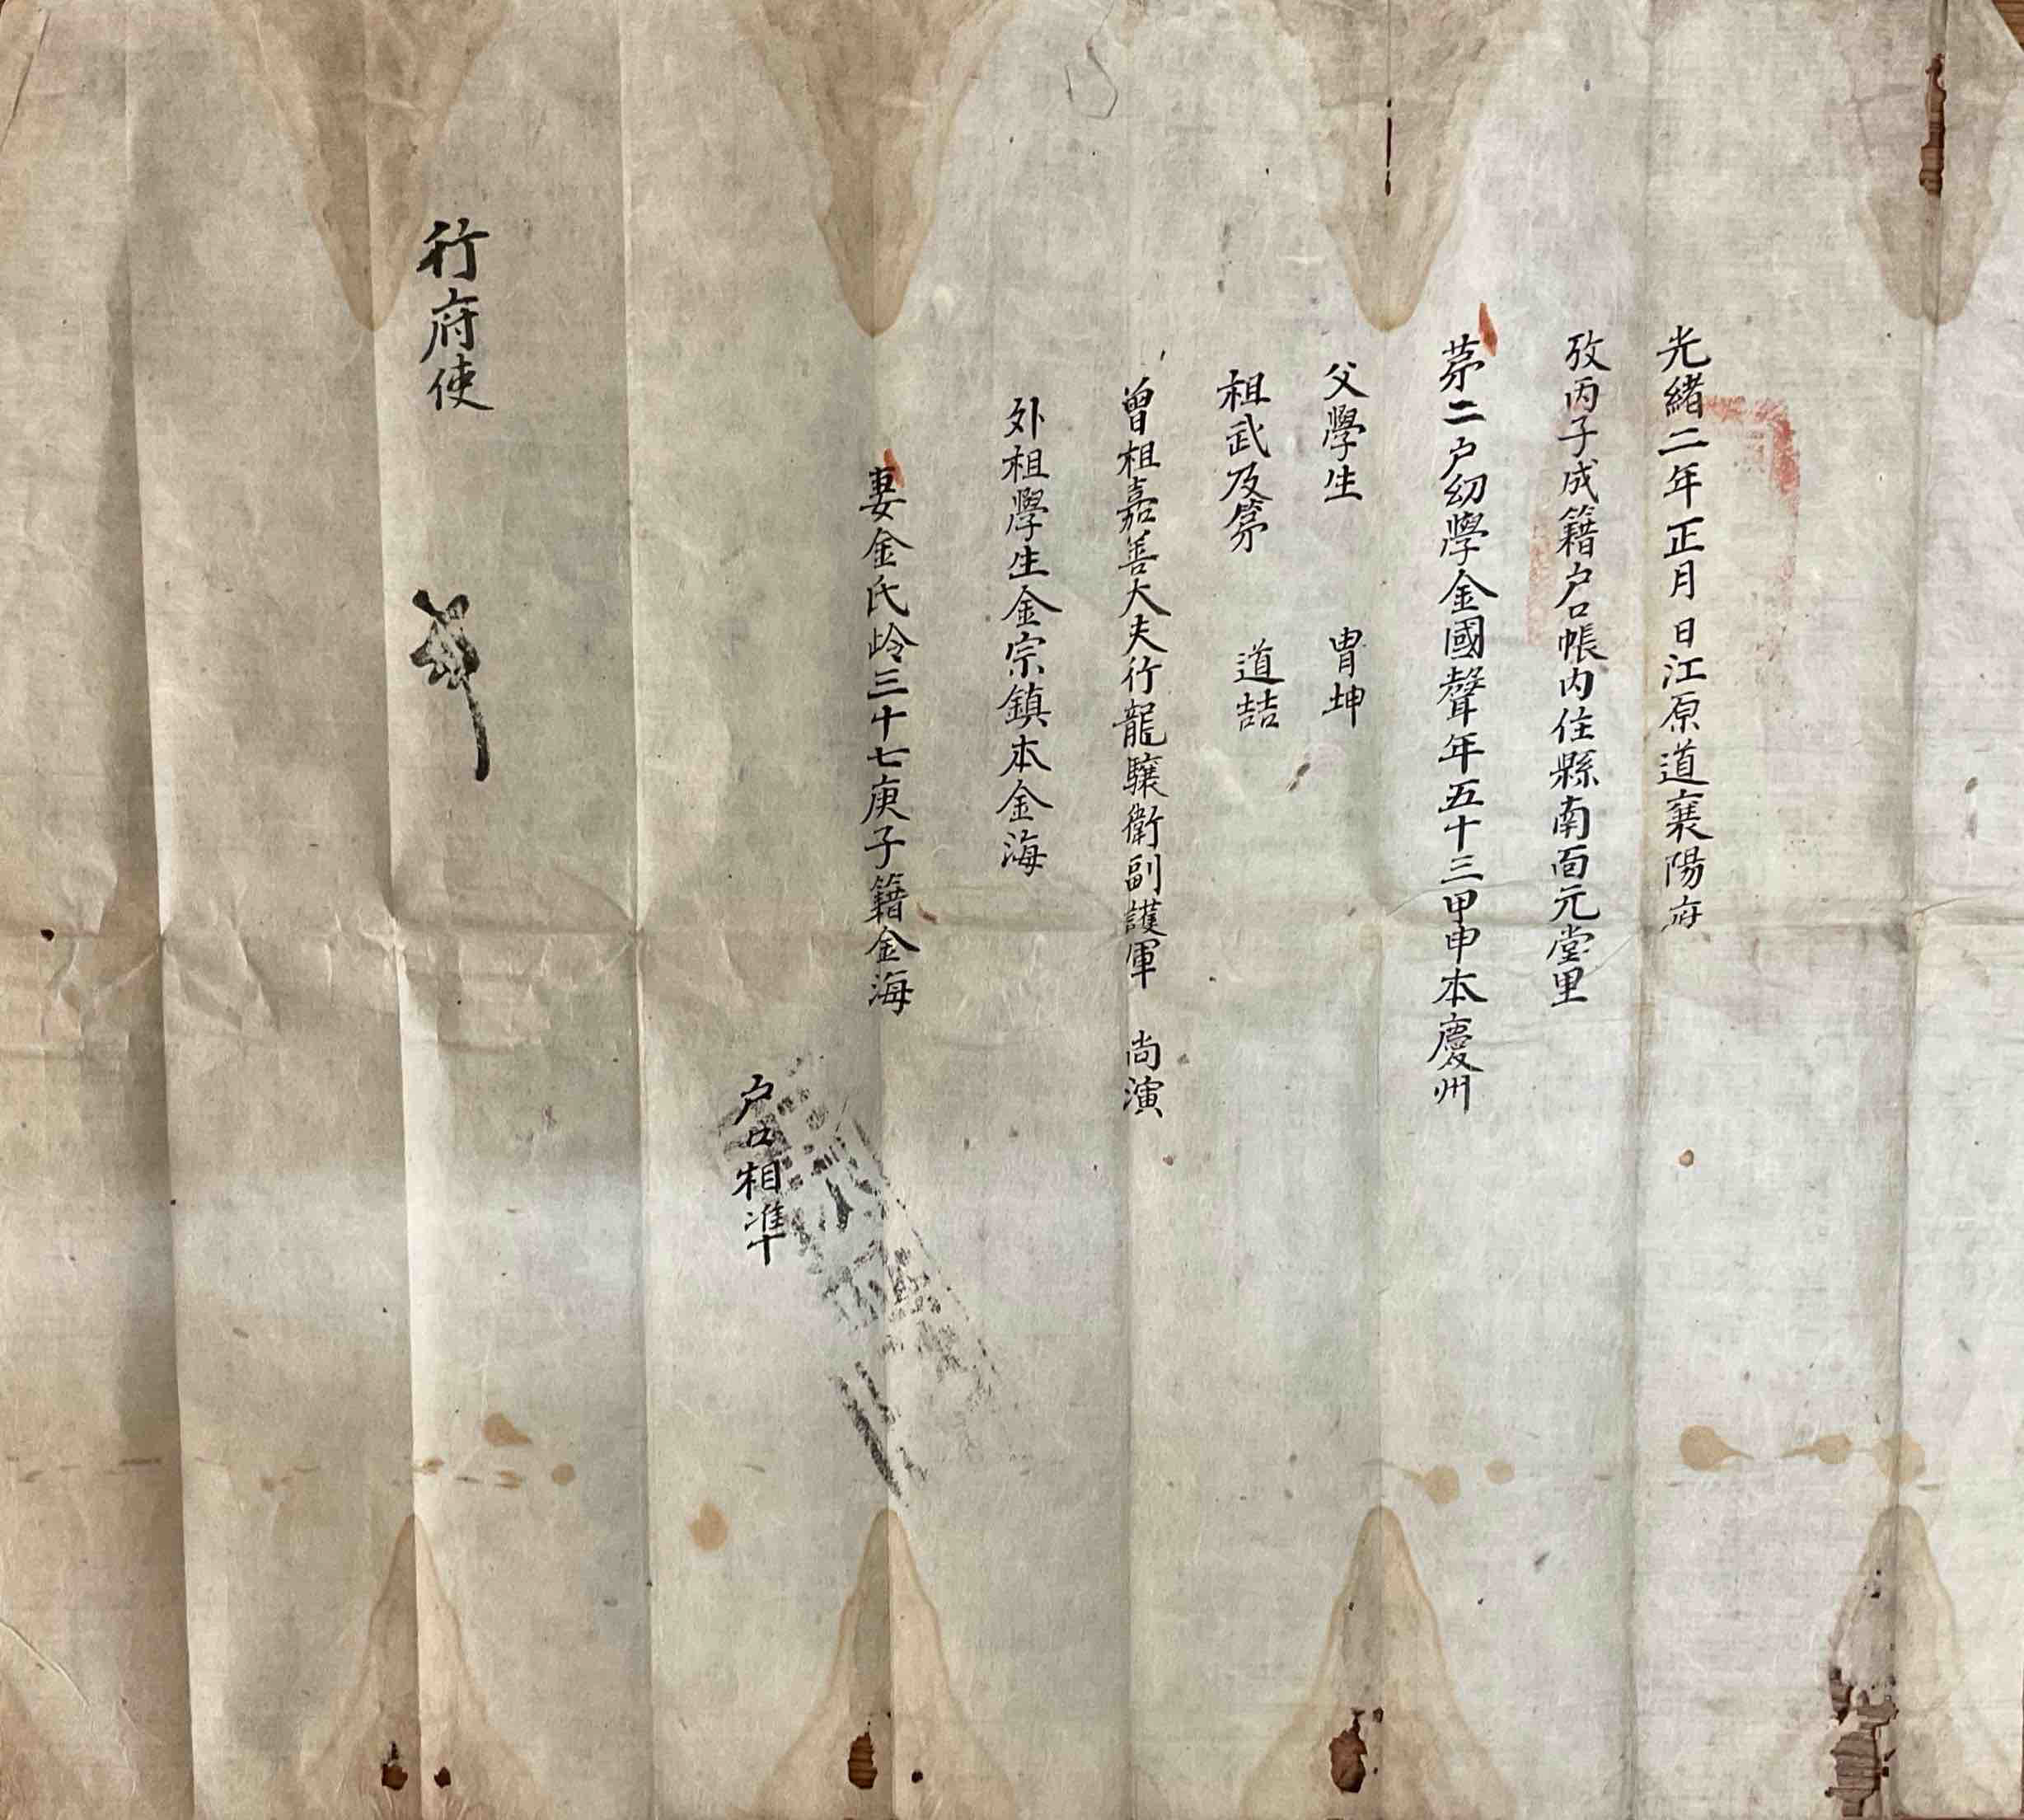 光緖二年正月 日江原道襄陽府
攷丙子成籍户口帳內住縣南面元堂里
苐二户幼學金國聲年五十三甲申本慶州
父學生 胄坤
祖武及第 道喆
曾祖嘉善大夫行龍驤衛副護軍 尚演
外祖學生金宗鎮本金海
妻金氏岭三十七庚子籍金海
户口相凖
行府使